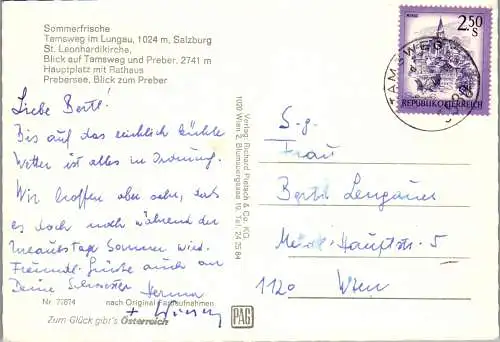 Sommerfrische
Tamsweg im Lungau, 1024 m, Salzburg
St. Leonhardikirche,
Blick auf Tamsweg und Preber, 2741 m
Hauptplatz mit Rathaus
Prebersee, Blick zum Preber
Liebe Bertl!
Bis auf das reichlich kühle
Wetter ist alles in Ordnung.
Wir hoffen aber sehr, dass
es doch noch während der
Sommer wird.
Freundl. Grüße auch an
Deine Schwester Herma
+
Nr. 70874
nach Original Farbaufnahmen
Zum Glück gibt's Österreich
Verlag: Richard Pietsch & Co. KG.
1020 Wien 2, Blumauergasse 19, Tel. 24 25 84
PAG
2.50
S
REPUBLIK ÖSTERREICH
TAMSWEG
S.g.
Frau
Bertl Lengauer
Hauptstr. 5
1120 Wien